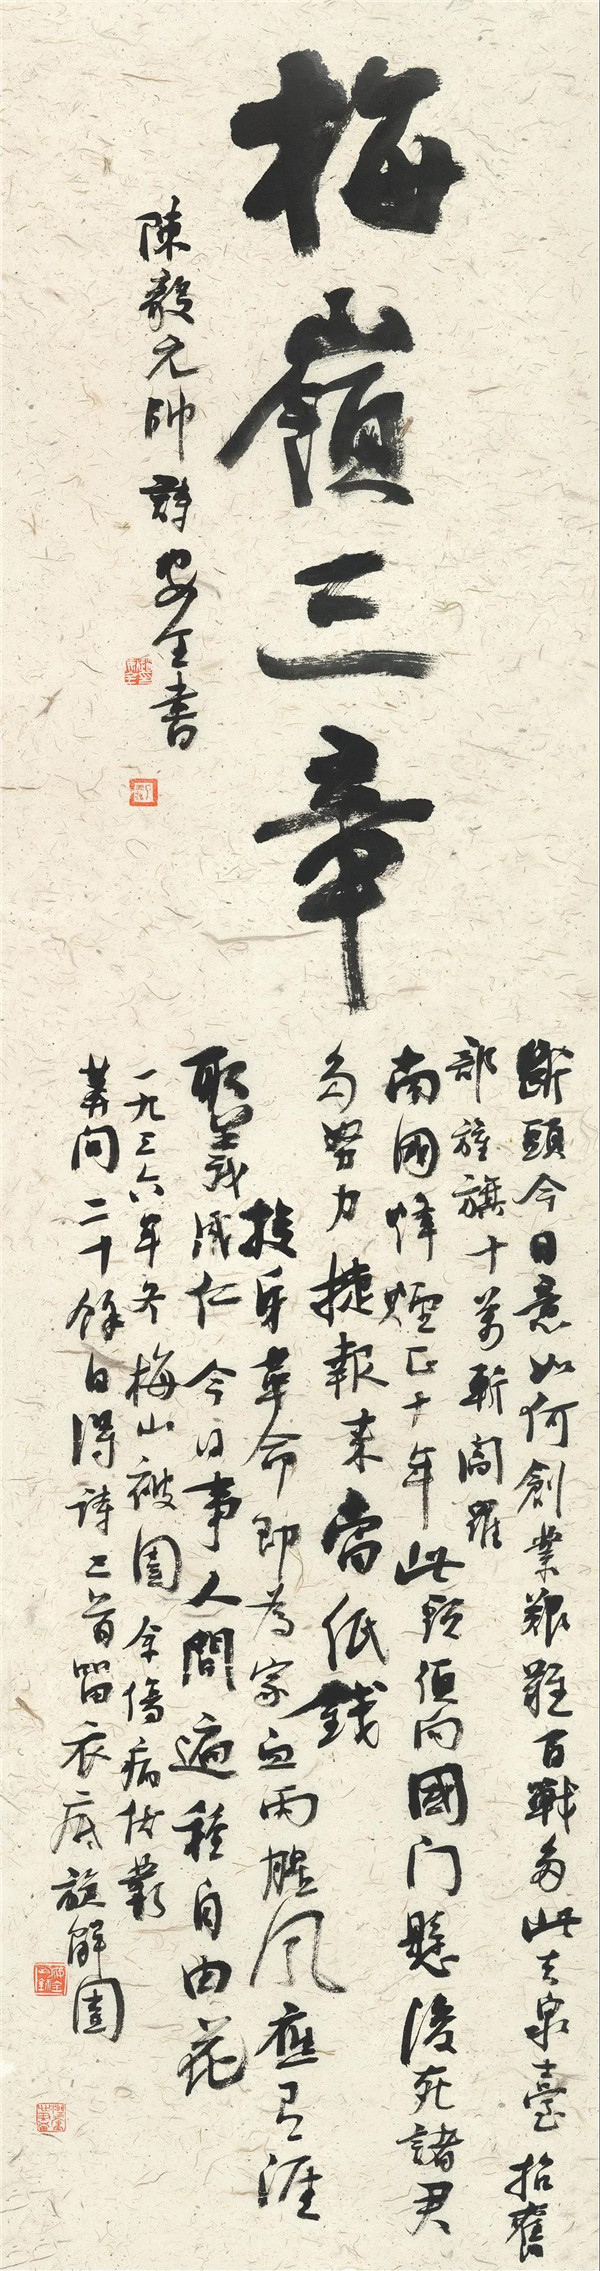 梅嶺三章
陳毅元帥詩 全書
斷頭今日意如何創業艱難百戰多此去泉臺招舊
部旌旗十萬斬閻羅
南國烽煙正十年此頭須向國门懸後死諸君
多努力捷報来當紙錢
投身革命即為家血雨腥風應有涯
取義成仁今日事人間遍種自由花
一九三六年冬梅山被圍余傷病伏叢
莽间二十餘日得詩三首留衣底旋解圍